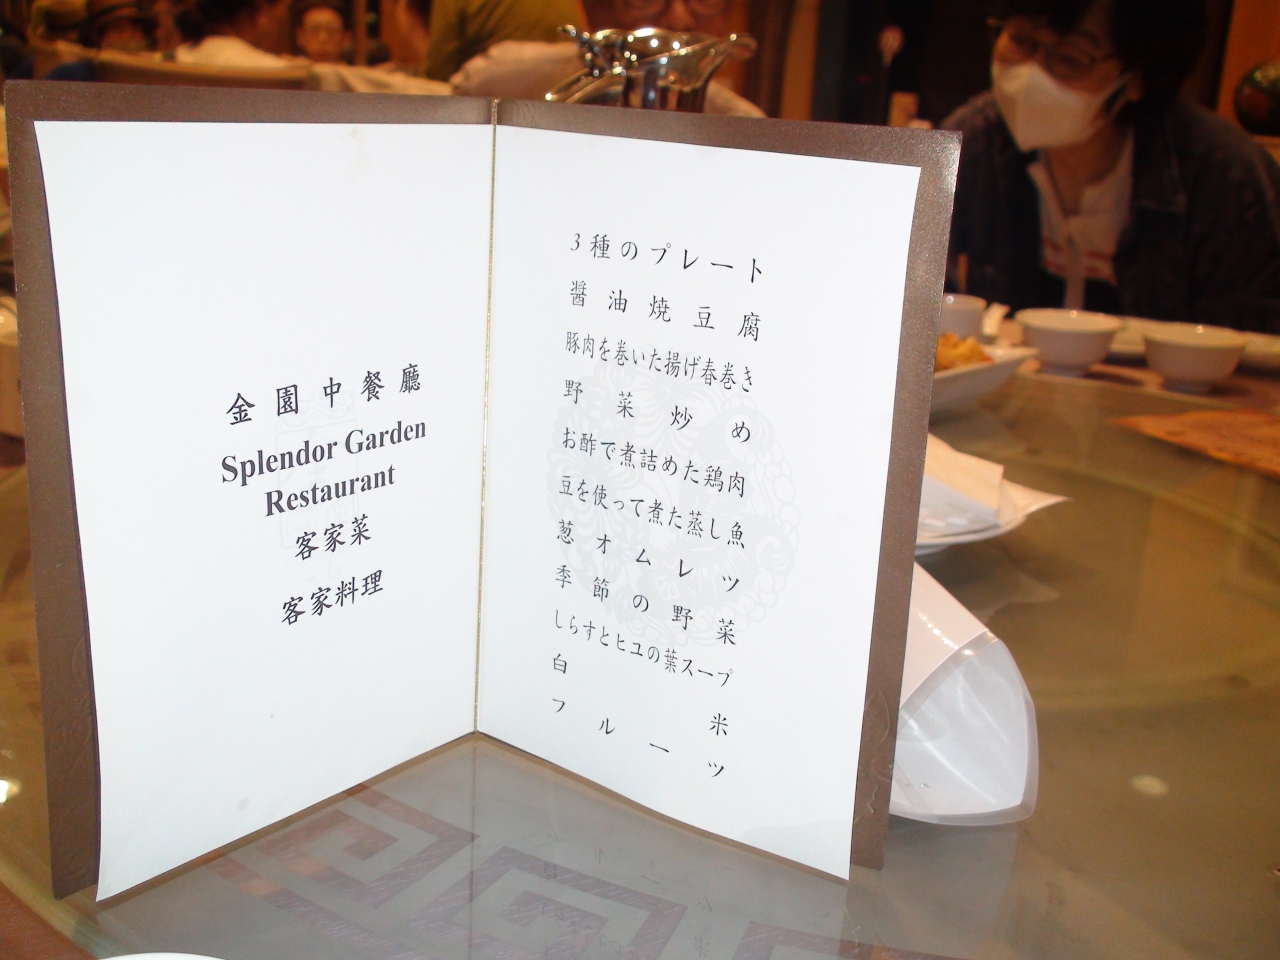 金園中餐廳
Splendor Garden
Restaurant
客家菜
客家料理
3種のプレート
醤油焼豆腐
豚肉を巻いた揚げ春巻き
野菜炒め
お酢で煮詰めた鶏肉
豆を使って煮た蒸し魚
葱オムレツ
季節の野菜
しらすとヒユの葉スープ
白米
フルーツ